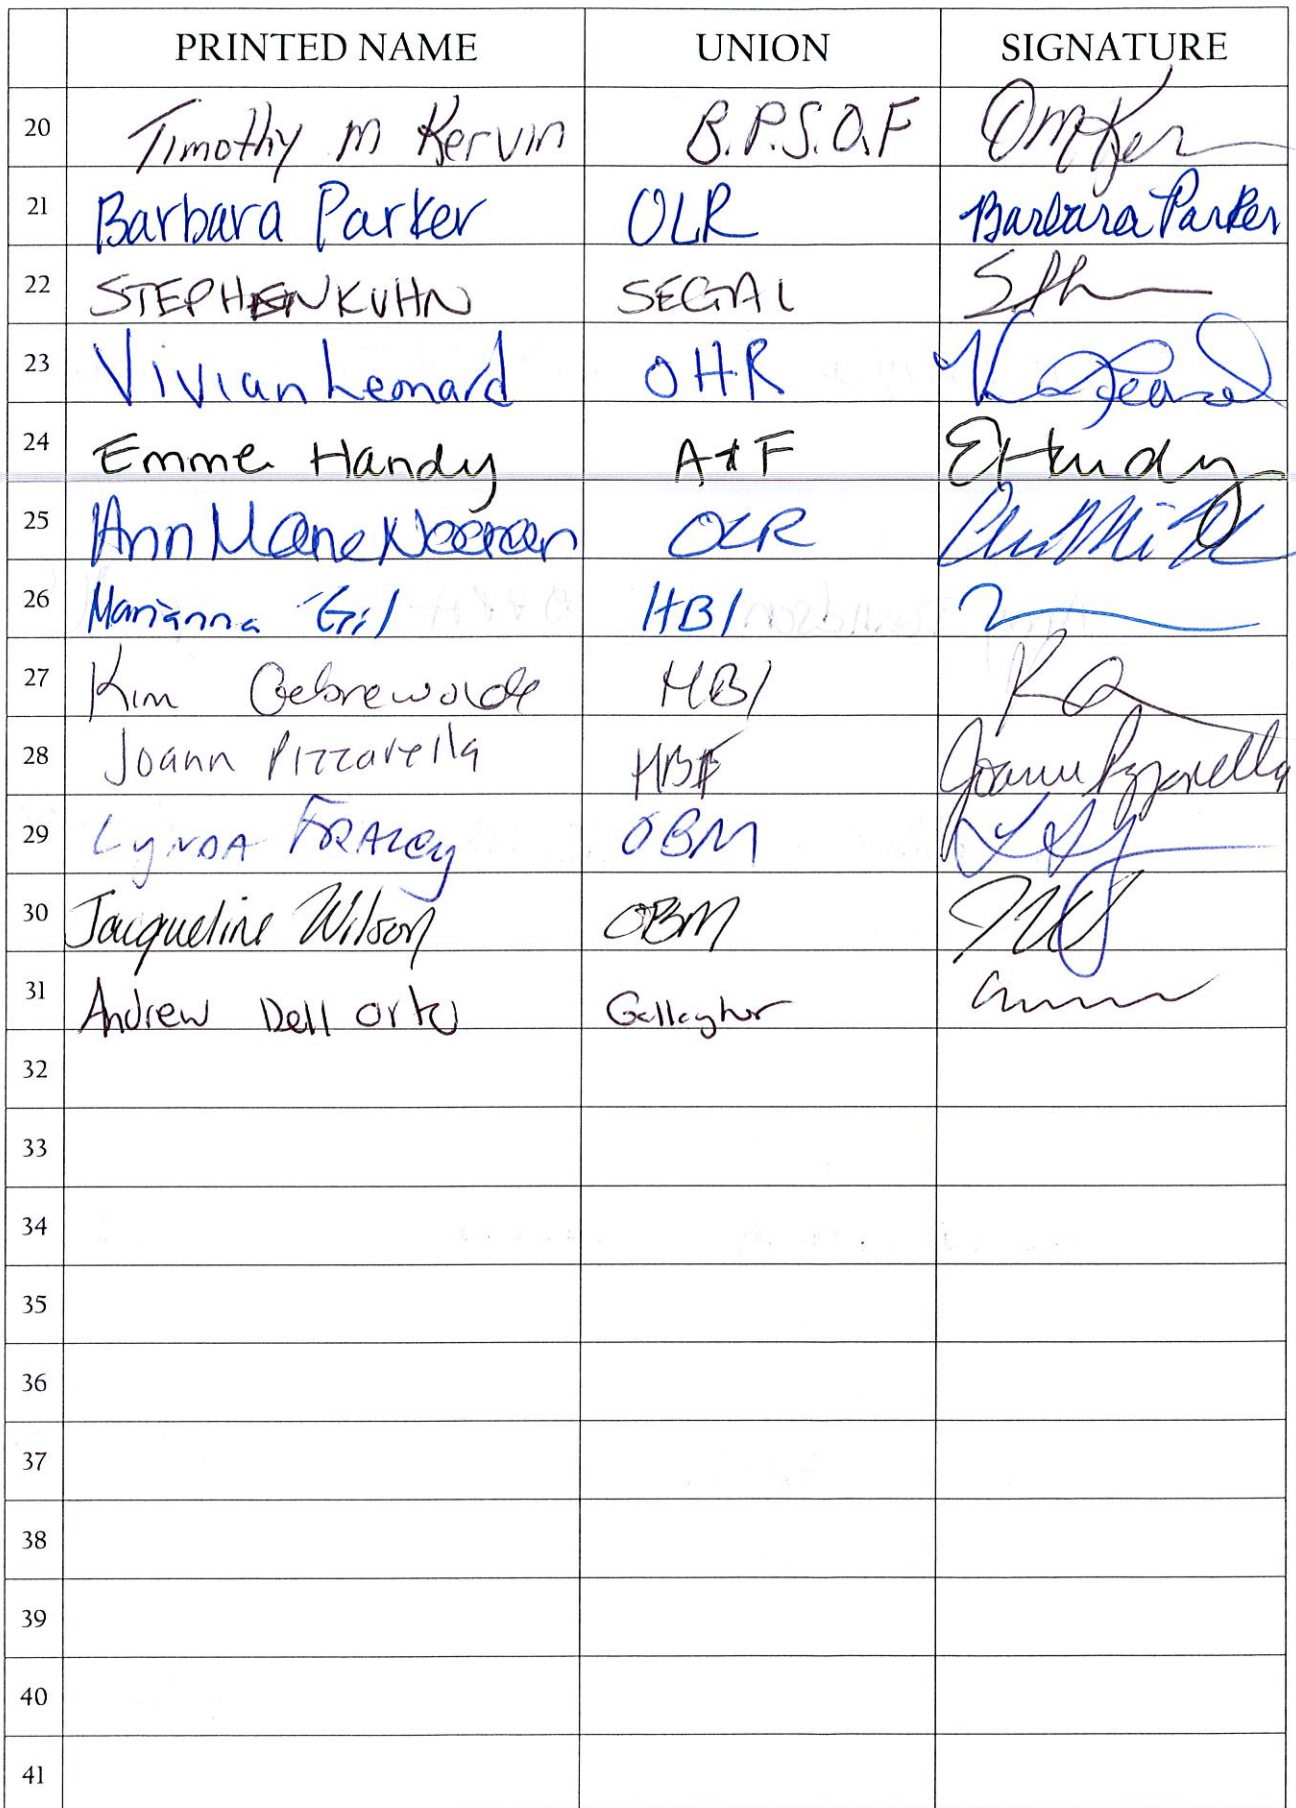 PRINTED NAME UNION SIGNATURE
20 Timothy M Kervin B.P.S.O.F
21 Barbara Parker OLR Barbara Parker
22 STEPHEN KUHN SEGAL
23 Vivian Leonard OHR
24 Emme Handy A+F EHandy
25 Ann Marie Noonan OLR
26 Marianna Gil HBI
27 Kim Gebrewolde HBI
28 Joann Pizzarella HBI Joann Pizzarella
29 Lynda Fraley OBM
30 Jacqueline Wilson OBM
31 Andrew Dell Orto Gallagher
32
33
34
35
36
37
38
39
40
41